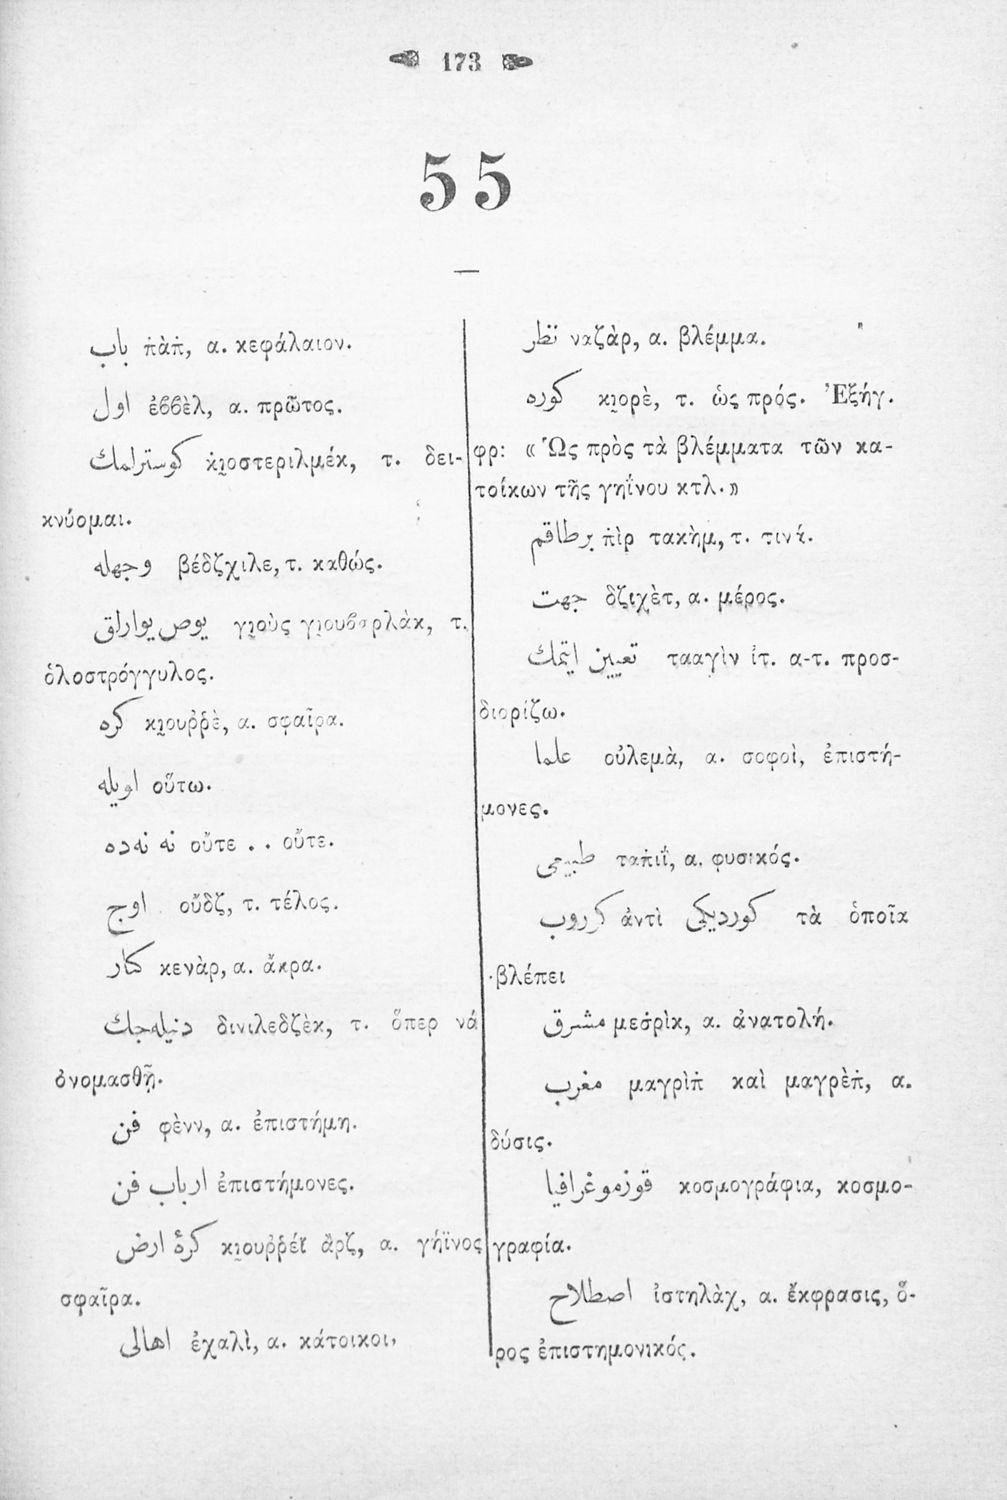 173
55
باب πὰπ, α. κεφάλαιον.
اول ἐββὲλ, α. πρῶτος.
كوسترلمك κιοστεριλμέκ, τ. δει-
κνύομαι.
وجهله βέδζχιλε, τ. καθώς.
يوص يوارلق γιοὺς γιουβαρλὰκ, τ.
ὁλοστρόγγυλος.
كره κιουῤῥὲ, α. σφαῖρα.
اويله οὕτω.
نه نه ده οὔτε . . οὔτε.
اوج οὔδζ, τ. τέλος.
كنار κενὰρ, α. ἄκρα.
دنيله جك δινιλεδζὲκ, τ. ὅπερ νά
ὀνομασθῇ.
فن φὲνν, α. ἐπιστήμη.
ارباب فن ἐπιστήμονες.
كرۀ ارض κιουῤῥέϊ ἂρζ, α. γήϊνος
σφαῖρα.
اهالى ἐχαλὶ, α. κάτοικοι,
نظر ναζὰρ, α. βλέμμα.
كوره κιορὲ, τ. ὡς πρός. Ἐξήγ.
φρ: « Ὡς πρὸς τὰ βλέμματα τῶν κα-
τοίκων τῆς γηΐνου κτλ.»
برطاقم πὶρ τακὴμ, τ. τινά.
جهت δζιχὲτ, α. μέρος.
تعيين ايتمك τααγὶν ἰτ. α-τ. προσ-
διορίζω.
علما οὐλεμὰ, α. σοφοὶ, ἐπιστή-
μονες.
طبيعى ταπιῒ, α. φυσικός.
كوروب ἀντὶ كورديكى τὰ ὁποῖα
βλέπει
مشرق μεσρὶκ, α. ἀνατολή.
مغرب μαγρὶπ καὶ μαγρὲπ, α.
δύσις.
قوزموغرافيا κοσμογράφια, κοσμο-
γραφία.
اصطلاح ἰστηλὰχ, α. ἔκφρασις, ὅ-
ρος ἐπιστημονικός.